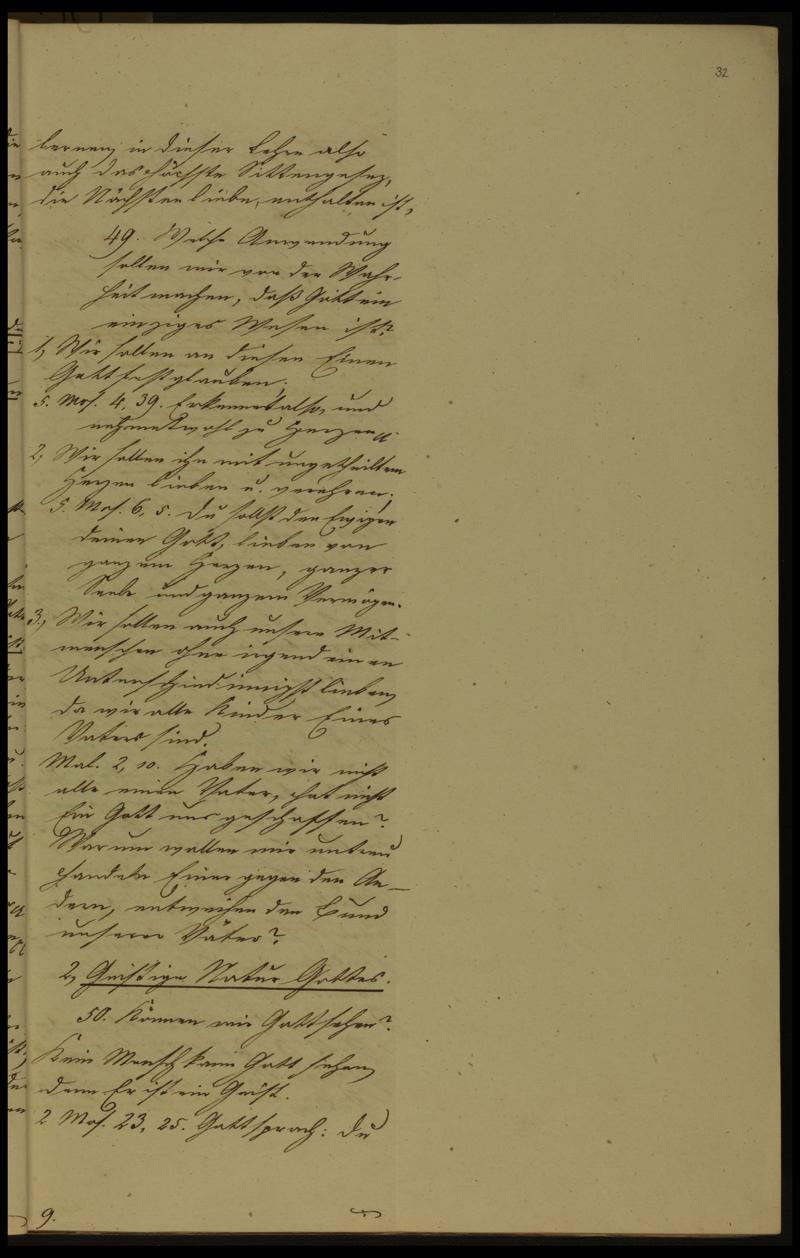 32
lernen, in dieser Lehre also
auch das höchste Sittengesez,
die Nächstenliebe, enthalten ist,
49. Welche Anwendung
sollen wir von der Wahr-
heit machen, daß Gott ein
einziges Wesen ist?
1, Wir sollen an diesen Einen
Gott fest glauben;
5. Mos. 4, 39. Erkennet also, und
nehmet wohl zu Herzen
2, Wir sollen ihn mit ungetheiltem
Herzen lieben u. verehren;
5. Mos. 6, 5. Du sollst den Ewigen
deinen Gott, lieben von
ganzem Herzen, ganzer
Seele und ganzem Vermögen.
3, Wir sollen auch unsere Mit-
menschen ohne irgend einen
Unterschied innigst lieben,
da wir alle Kinder Eines
Vaters sind.
Mal. 2, 10. Haben wir nicht
alle einen Vater, hat nicht
Ein Gott uns geschaffen?
Warum wollen wir untreu
handeln Einer gegen den An-
dern, entweihen den Bund
unserer Väter?
2, Geistige Natur Gottes.
50. Können wir Gott sehen?
Kein Mensch kann Gott sehen,
denn Er ist ein Geist.
2 Mos. 23, 25. Gott sprach: Du
9.